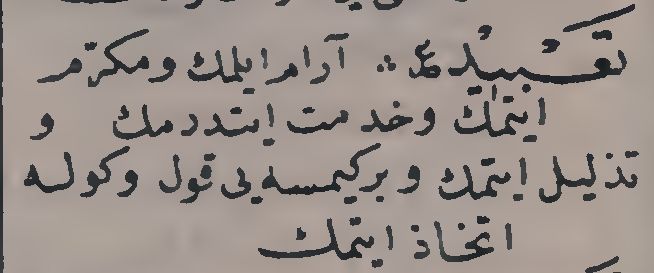 تَعْبِيدْ ع ∴ آرام ايلمك ومكرّم
ايتمك وخدمت ايتدرمك و
تذليل ايتمك وبركيمسه يى قول وكوله
اتخاذ ايتمك